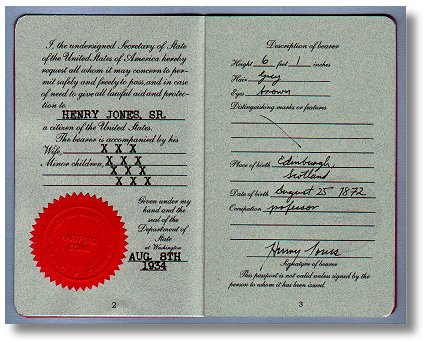 I, the undersigned Secretary of State
of the United States of America hereby
request all whom it may concern to per-
mit safely and freely to pass, and in case
of need to give all lawful aid and protec-
tion to
HENRY JONES, SR.
a citizen of the United States.
The bearer is accompanied by his
Wife, X X X
Minor children, X X X
X X X
X X X
Given under my
hand and the
seal of the
Department of
State
at Washington
AUG. 8TH
1934
2
Description of bearer
Height 6 feet 1 inches
Hair Grey
Eyes brown
Distinguishing marks or features
Place of birth Edinburgh,
Scotland
Date of birth August 25 1872
Occupation professor
Henry Jones
Signature of bearer
This passport is not valid unless signed by the
person to whom it has been issued.
3